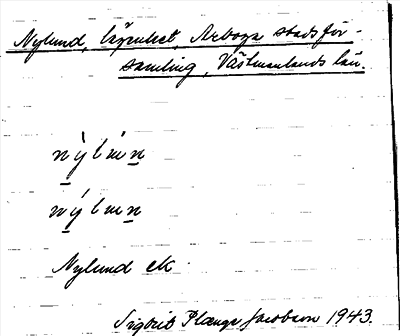 Nylund, lägenhet, Arboga stadsför-
samling, Västmanlands län.
nỳlmn
nýlmn
Nylund ek
Sigbrit Plænge Jacobson 1943.